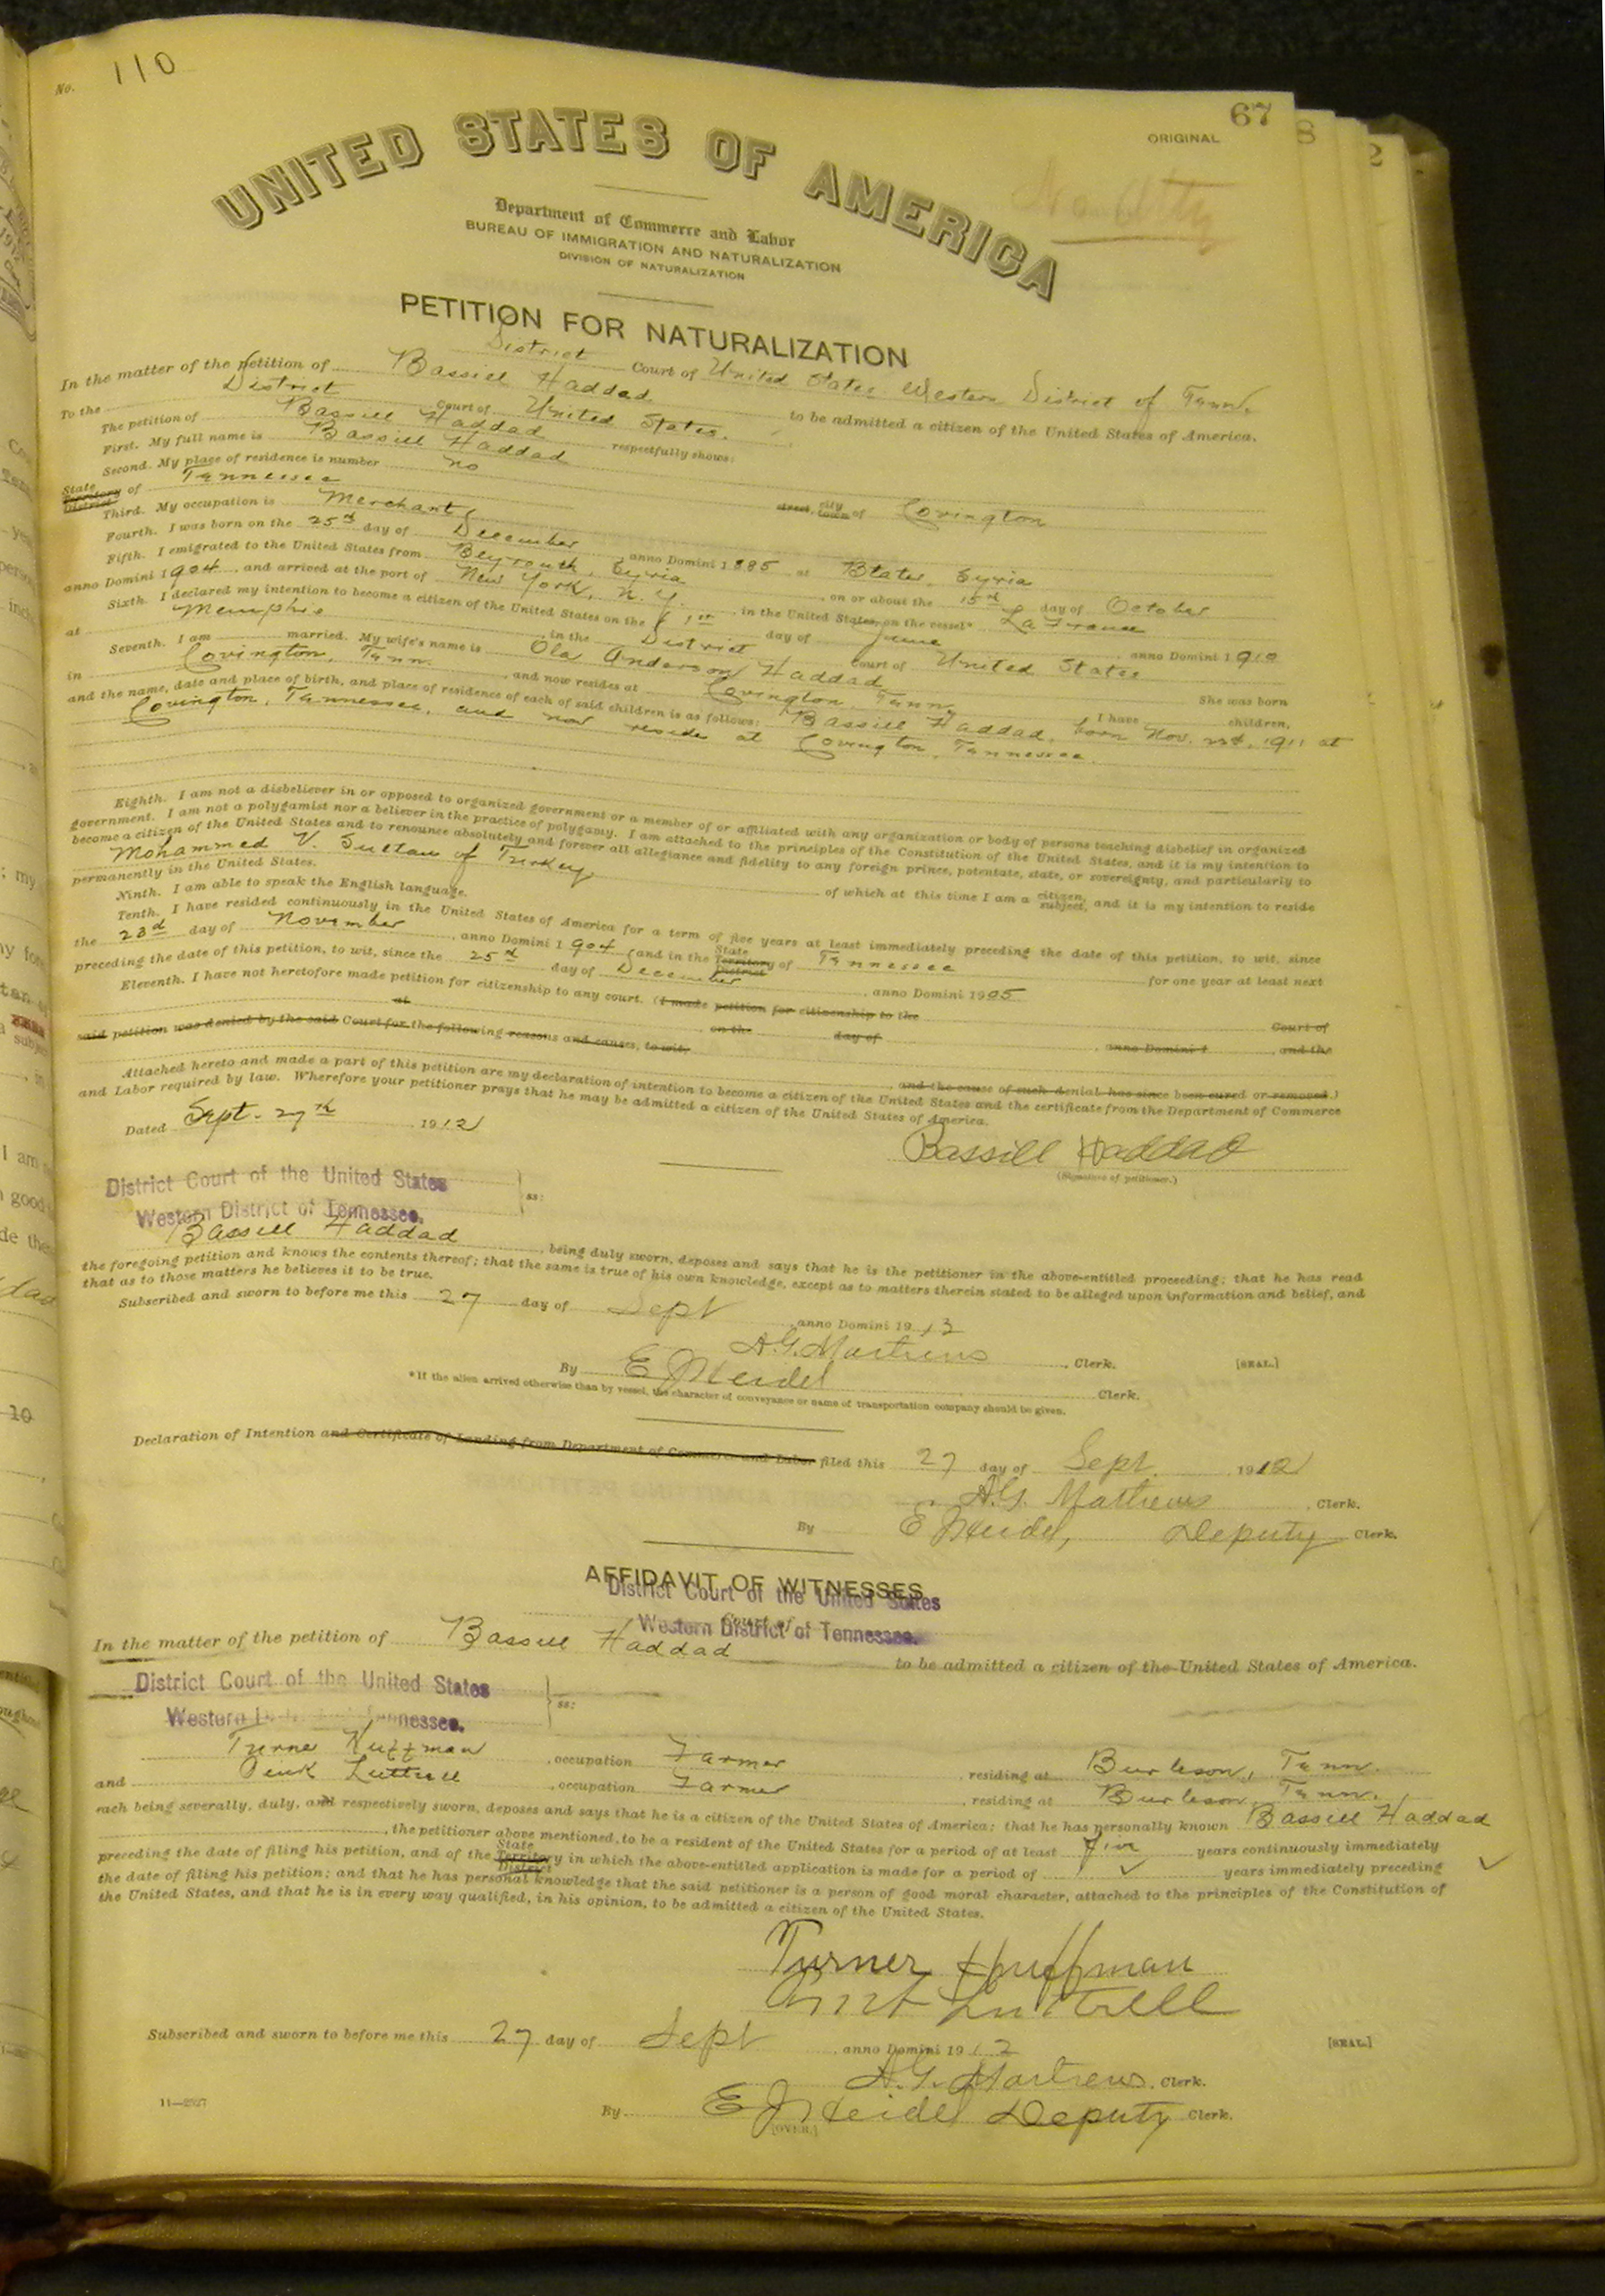 No. 110
67
8
2
ORIGINAL
UNITED STATES OF AMERICA
Department of Commerce and Labor
BUREAU OF IMMIGRATION AND NATURALIZATION
DIVISION OF NATURALIZATION
PETITION FOR NATURALIZATION
District Court of United States Western District of Tenn.
In the matter of the petition of Bassill Haddad to be admitted a citizen of the United States of America.
To the District Court of United States.
The petition of Bassill Haddad respectfully shows:
First. My full name is Bassill Haddad
Second. My place of residence is number no street, city town of Covington
State Territory District of Tennessee
Third. My occupation is Merchant
Fourth. I was born on the 25th day of December, anno Domini 1885 at Blater, Syria
Fifth. I emigrated to the United States from Beyrouth, Syria on or about the 15th day of October
anno Domini 1904, and arrived at the port of New York, N.Y., in the United States, on the vessel* La France
Sixth. I declared my intention to become a citizen of the United States on the 1st day of June anno Domini 1910
at Memphis, in the District Court of United States
Seventh. I am married. My wife's name is Ola Anderson Haddad She was born
in Covington, Tenn., and now resides at Covington Tenn. I have children,
and the name, date and place of birth, and place of residence of each of said children is as follows: Bassill Haddad, born Nov. 1911 at
Covington, Tennessee, and now reside at Covington, Tennessee.
Eighth. I am not a disbeliever in or opposed to organized government or a member of or affiliated with any organization or body of persons teaching disbelief in organized
government. I am not a polygamist nor a believer in the practice of polygamy. I am attached to the principles of the Constitution of the United States, and it is my intention to
become a citizen of the United States and to renounce absolutely and forever all allegiance and fidelity to any foreign prince, potentate, state, or sovereignty, and particularly to
Mohammed V. Sultan of Turkey of which at this time I am a citizen, subject, and it is my intention to reside
permanently in the United States.
Ninth. I am able to speak the English language.
Tenth. I have resided continuously in the United States of America for a term of five years at least immediately preceding the date of this petition, to wit, since
the 23d day of November, anno Domini 1904, and in the State Territory District of Tennessee for one year at least next
preceding the date of this petition, to wit, since the 25th day of December, anno Domini 1905
Eleventh. I have not heretofore made petition for citizenship to any court. (I made petition for citizenship to the Court of
at on the day of, anno Domini 1, and the
said petition was denied by the said Court for the following reasons and causes, to wit:
, and the cause of such denial has since been cured or removed.)
Attached hereto and made a part of this petition are my declaration of intention to become a citizen of the United States and the certificate from the Department of Commerce
and Labor required by law. Wherefore your petitioner prays that he may be admitted a citizen of the United States of America.
Dated Sept. 27th 1912
Bassill Haddad
(Signature of petitioner.)
District Court of the United States
Western District of Tennessee. ss:
Bassill Haddad, being duly sworn, deposes and says that he is the petitioner in the above-entitled proceeding; that he has read
the foregoing petition and knows the contents thereof; that the same is true of his own knowledge, except as to matters therein stated to be alleged upon information and belief, and
that as to those matters he believes it to be true.
Subscribed and sworn to before me this 27 day of Sept, anno Domini 1912
A.G. Mathews, Clerk. [SEAL.]
By E J Heidel Clerk.
*If the alien arrived otherwise than by vessel, the character of conveyance or name of transportation company should be given.
Declaration of Intention and Certificate of Landing from Department of Commerce and Labor filed this 27 day of Sept. 1912
A.G. Mathews, Clerk.
By E J Heidel, Deputy Clerk.
AFFIDAVIT OF WITNESSES
District Court of the United States
Court of
Western District of Tennessee.
In the matter of the petition of Bassill Haddad to be admitted a citizen of the United States of America.
District Court of the United States
Western Tennessee. ss:
Turner Huffman, occupation Farmer, residing at Burleson, Tenn.
and Luttrell, occupation Farmer, residing at Burleson, Tenn.
each being severally, duly, and respectively sworn, deposes and says that he is a citizen of the United States of America; that he has personally known Bassill Haddad
, the petitioner above mentioned, to be a resident of the United States for a period of at least five years continuously immediately
preceding the date of filing his petition, and of the State Territory District in which the above-entitled application is made for a period of ✓ years immediately preceding ✓
the date of filing his petition; and that he has personal knowledge that the said petitioner is a person of good moral character, attached to the principles of the Constitution of
the United States, and that he is in every way qualified, in his opinion, to be admitted a citizen of the United States.
Turner Huffman
Luttrell
Subscribed and sworn to before me this 27 day of Sept, anno Domini 1912 [SEAL.]
A.G. Mathews, Clerk.
11—2527
By E J Heidel Deputy Clerk.
[OVER.]